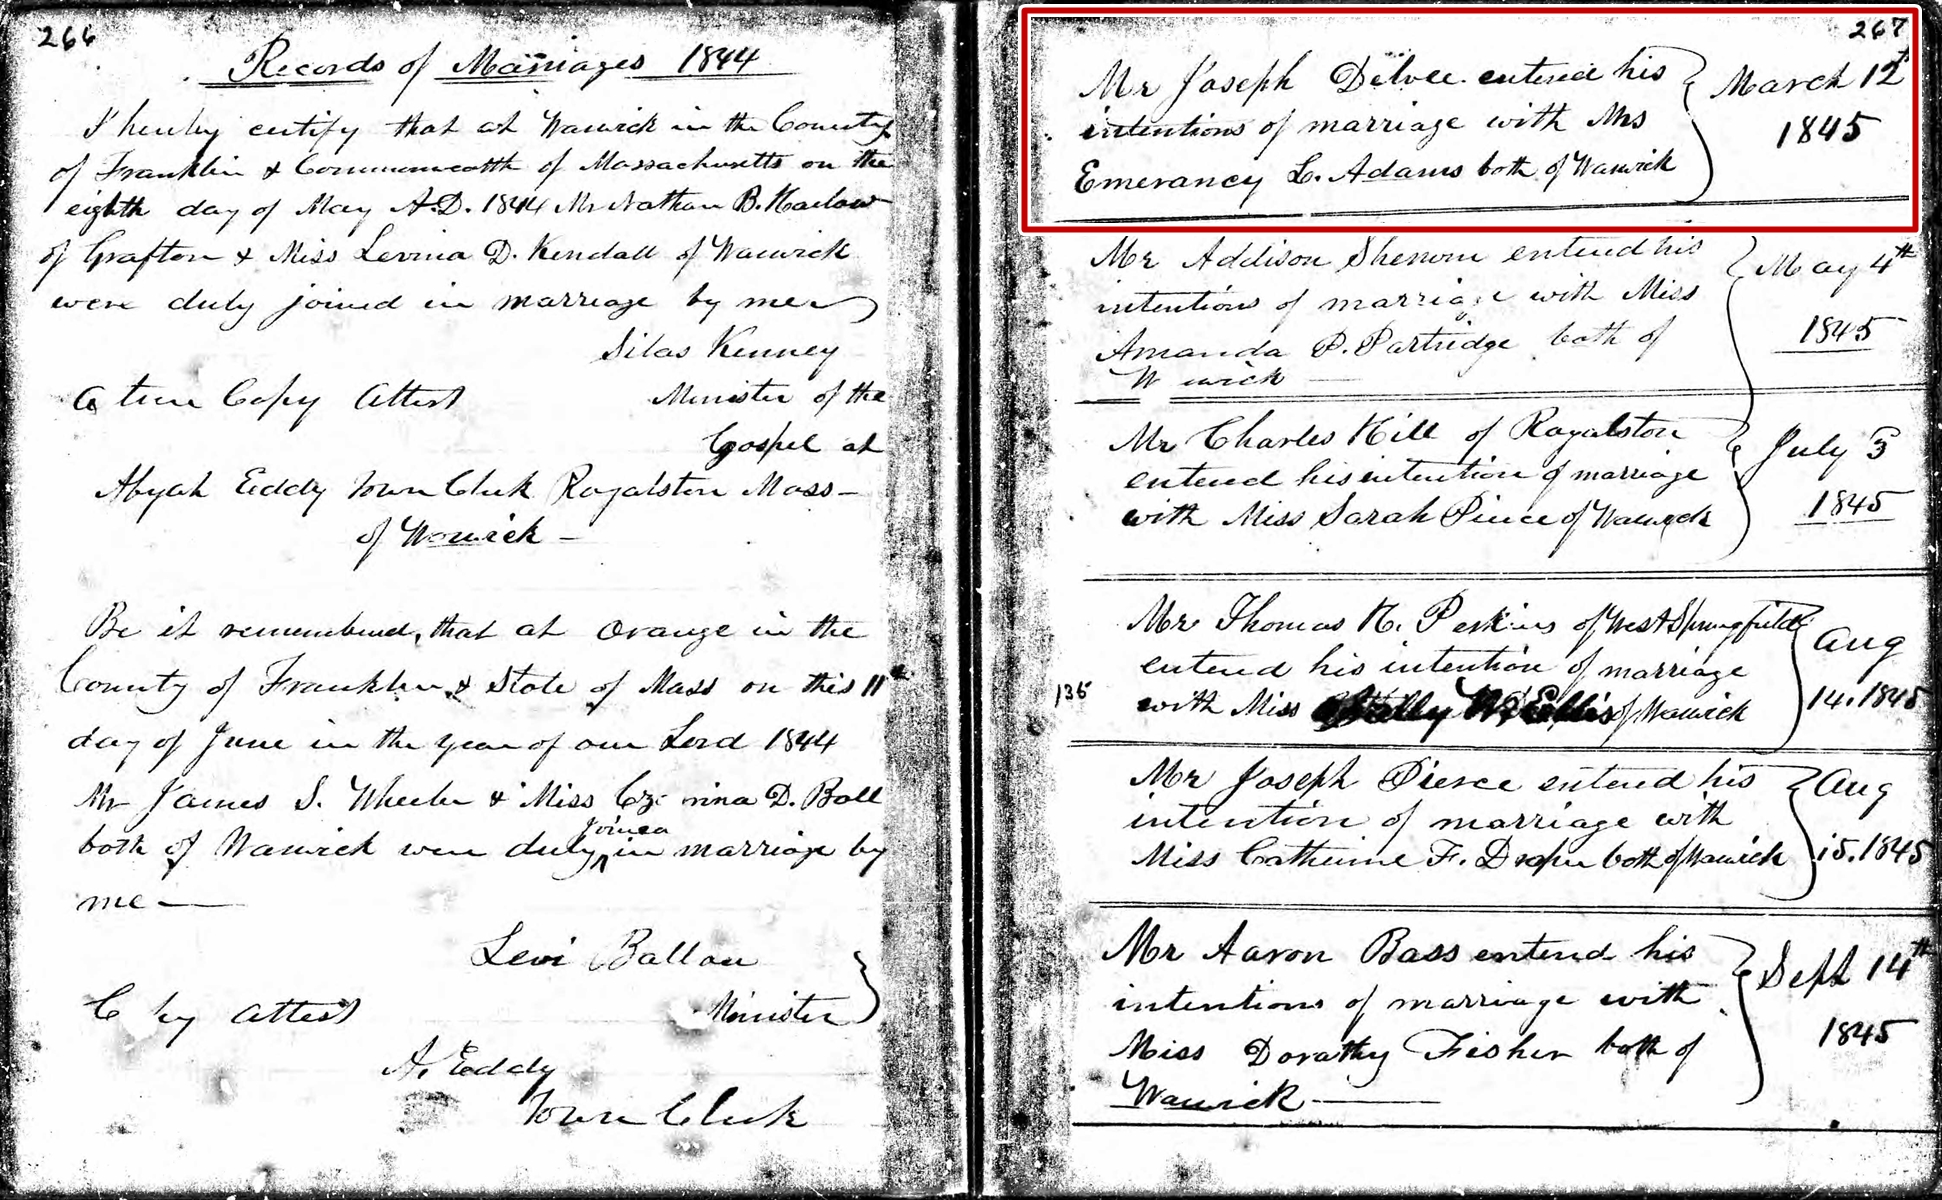 266
Records of Marriages 1844
I hereby certify that at Warwick in the County
of Franklin & Commonwealth of Massachusetts on the
eighth day of May A.D. 1844 Mr Nathan B. Harlow
of Grafton & Miss Levina D. Kendall of Warwick
were duly joined in marriage by me
Silas Kenney
A true Copy Attest Minister of the
Gospel at
Abijah Eddy Town Clerk Royalston Mass
of Warwick
Be it remembered, that at Orange in the
County of Franklin & State of Mass on this 11th
day of June in the year of our Lord 1844
Mr James S. Wheeler & Miss D. Ball
joined
both of Warwick were duly in marriage by
me
Levi Ballou
Attest Minister
A. Eddy
Town Clerk
267
Mr Joseph entered his March 12t
intentions of marriage with Mrs 1845
Emerancy L. Adams both of Warwick
Mr Addison Sherwin entered his May 4th
intentions of marriage with Miss
Amanda P. Partridge both of 1845
W wick
Mr Charles Hill of Royalston July 5
entered his intention of marriage
with Miss Sarah Pierce of Warwick 1845
Mr Thomas H. Perkins of West Springfield
entered his intention of marriage Aug
135 with Miss Ellis of Warwick 14. 1845
Mr Joseph Pierce entered his Aug
intention of marriage with
Miss Catherine F. Draper both of Warwick 15. 1845
Mr Aaron Bass entered his Sept 14th
intentions of marriage with
Miss Dorathy Fisher both of 1845
Warwick